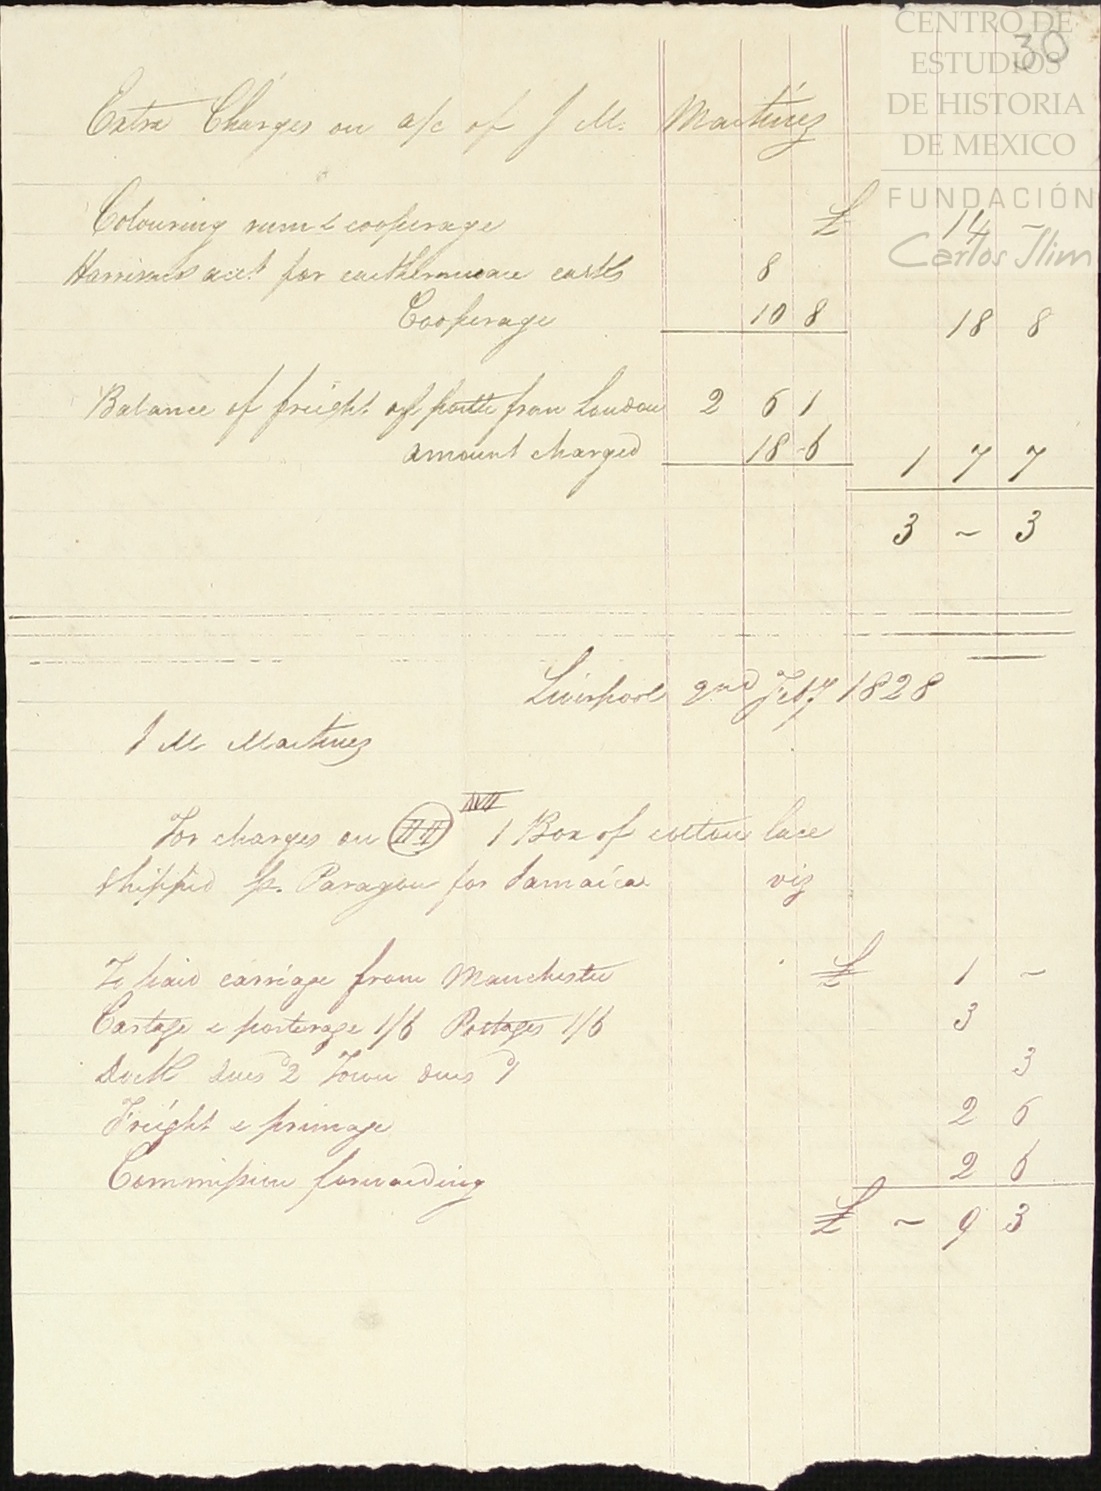 CENTRO DE
ESTUDIOS
DE HISTORIA
DE MEXICO
FUNDACIÓN
Carlos Slim
30
Extra Charges on a/c of J M. Martinez
Colouring rum & cooperage £ 14 -
Harrisons acct for earthenware casks 8
Cooperage 10 8 18 8
Balance of freight of from London 2 6 1
amount charged 18 6 1 7 7
3 ~ 3
Liverpool 2nd Feby 1828
J M Martinez
For charges on 1 Box of cotton lace
Shipped p. Paragon for Jamaica viz
To paid carriage from Manchester £ 1 ~
Cartage & porterage 1/6 Postages 1/6 3
Dock dues 2d Town dues 1d 3
Freight & primage 2 6
Commission forwarding 2 6
£ ~ 9 3